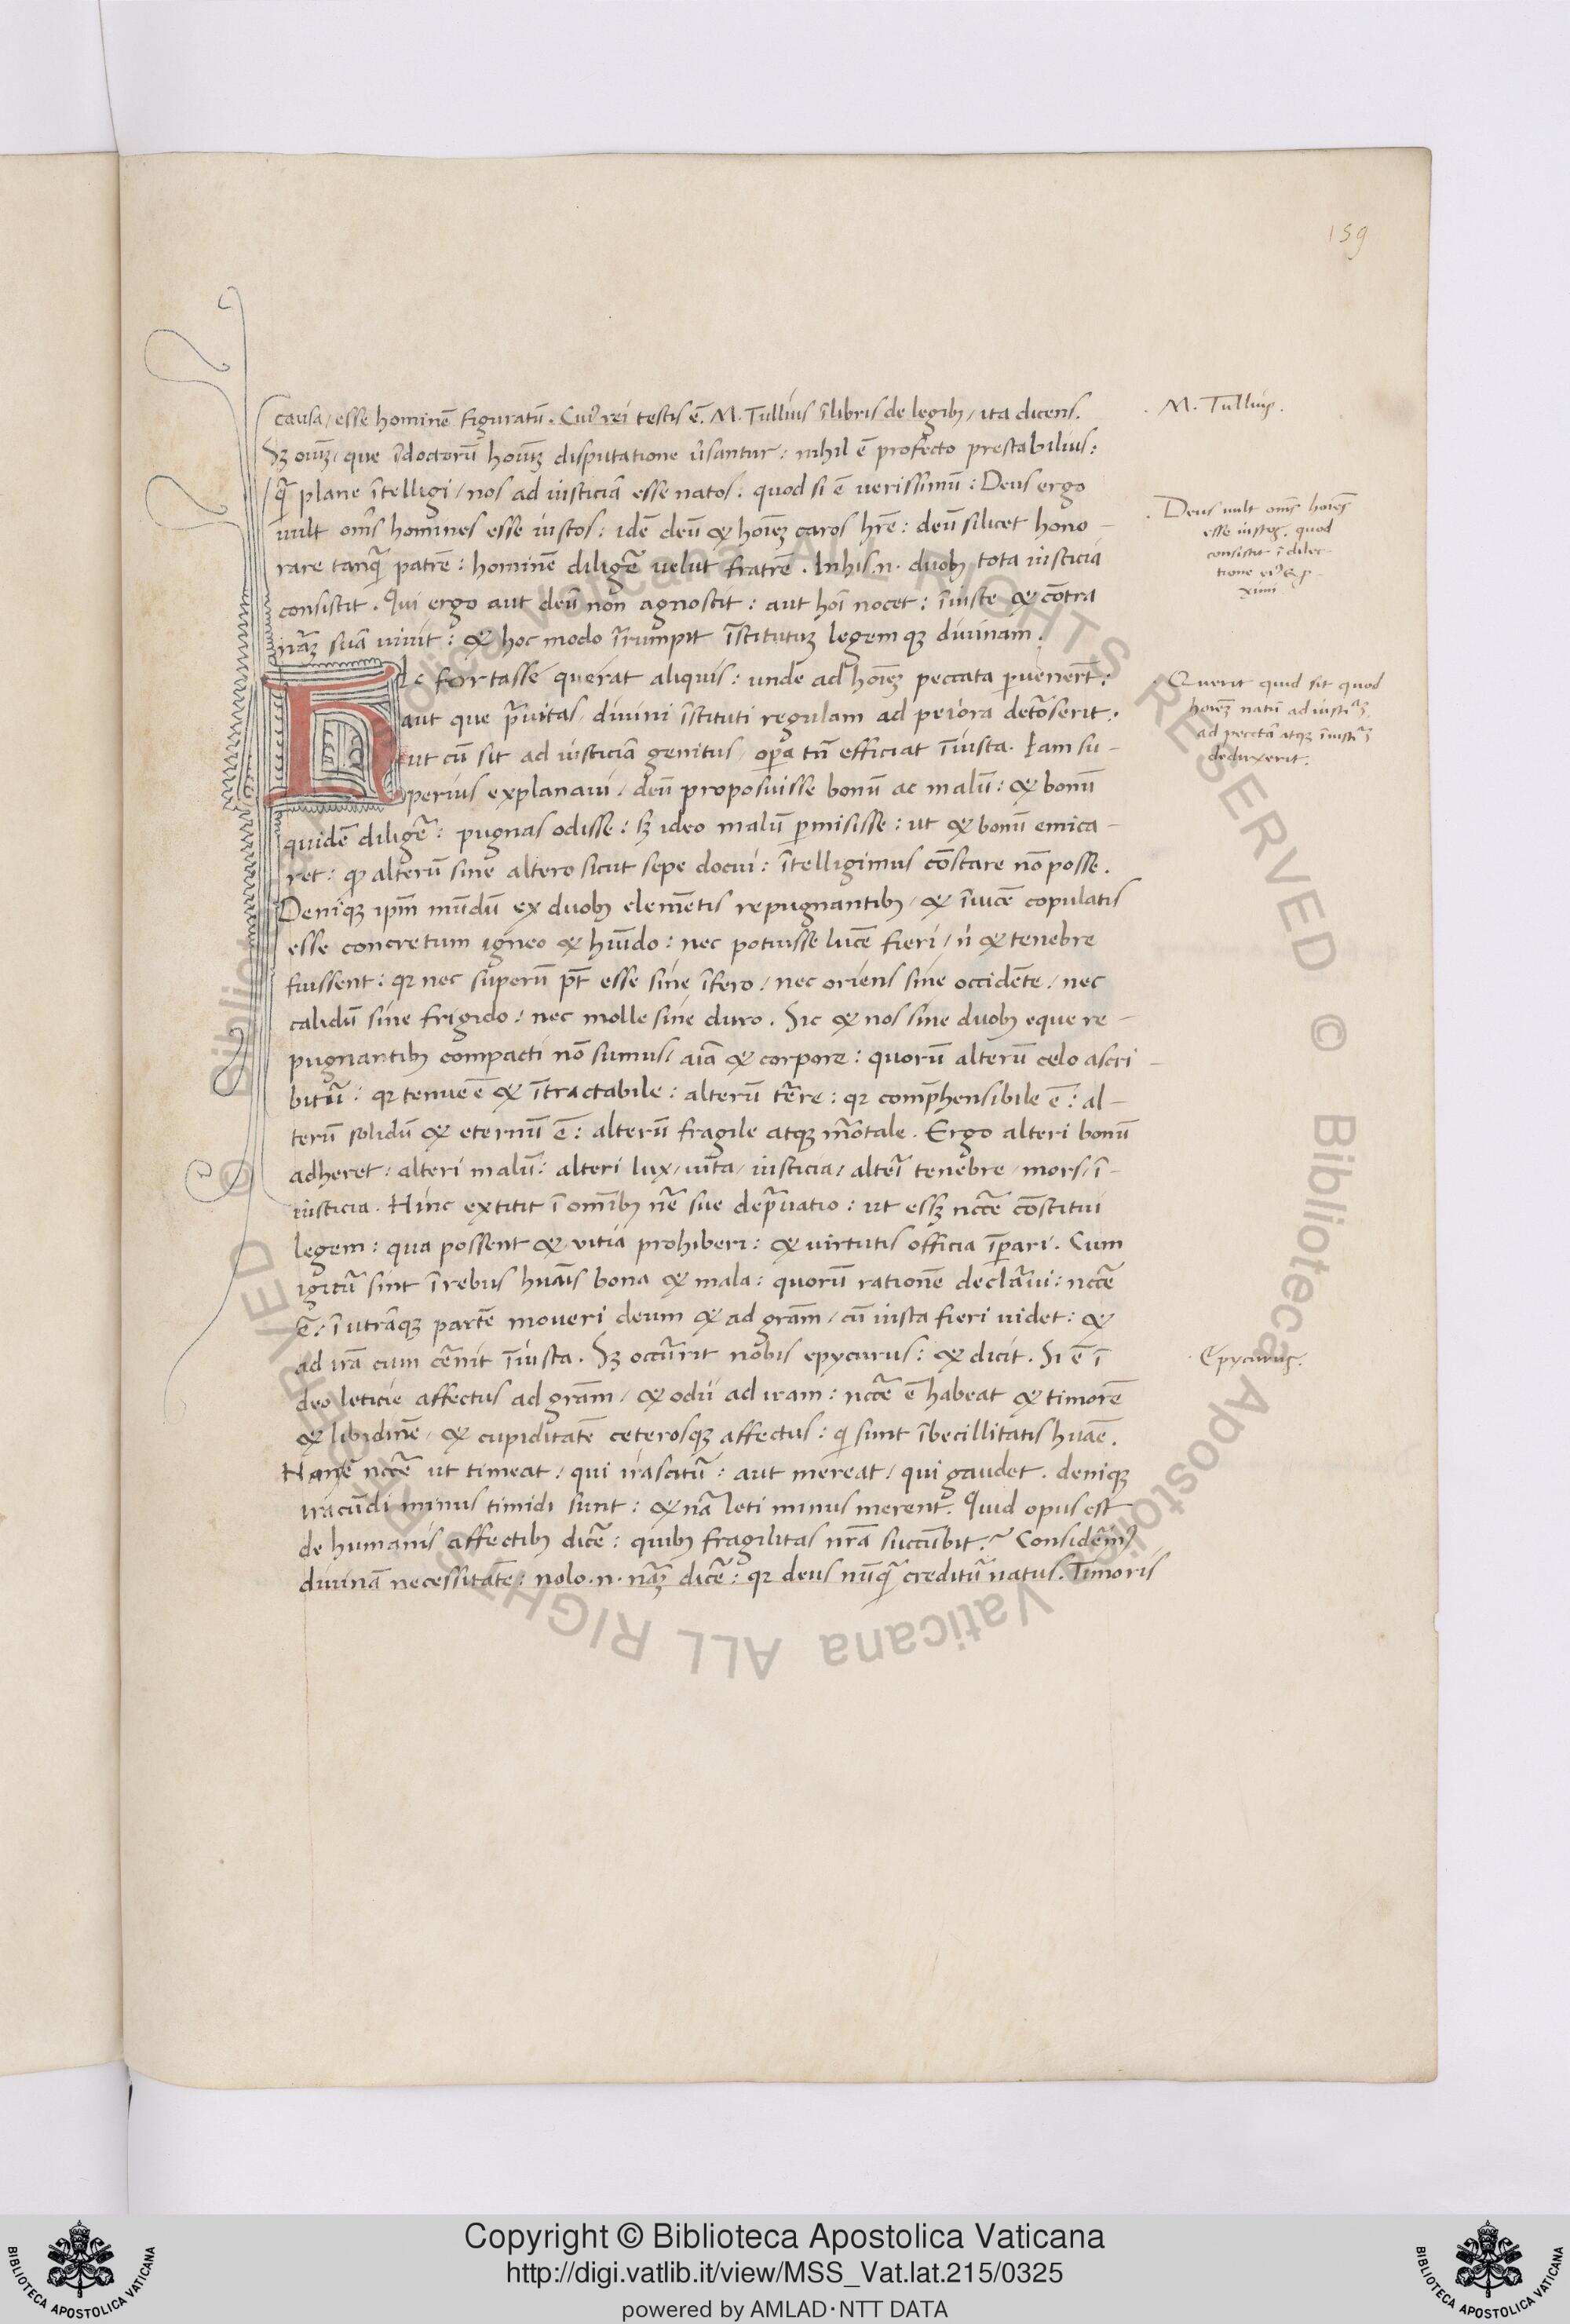 159
causa / esse hominē figuratū. Cuiꝰ rei testis ē. M. Tullius ī libris de legibꝫ / ita dicens.
M. Tulliuꝭ.
Sꝫ oīuꝫ / que ī doctorū hoīuꝫ disputatione ūsantur: nihil ē profecto prestabilius:
q̄ plane ītelligi / nos ad iusticiā esse natos. quod si ē uerissimū: Deus ergo
uult om̄s homines esse iustos: idē deū & hoīeꝫ caros hr̄e: deū silicet hono-
rare tanq̄ patrē: hominē diligr̄e uelut fratrē. In his .n. duobꝫ tota iusticia
consistit. Qui ergo aut deū non agnoscit: aut hoī nocet: īiuste & cōtra
nāꝫ suā uiuit: & hoc modo īrumpit īstitutuꝫ legem qꝫ diuinam.
Deus uult om̄s hoīes
esse iustoꝭ. quod
consistit ī dilec-
tione ei & p̄-
ximi
Hic fortasse querat aliquis: unde ad hoīeꝫ peccata ꝑuenerīt:
aut que p̄uitas / diuini īstituti regulam ad peiora detorserit:
aut cū sit ad iusticiā genitus / oꝑa tn̄ efficiat īiusta. Iam su-
perius explanaui / deū proposuisse bonū ac malū: & bonū
quidē diligr̄e: pugnas odisse: sꝫ ideo malū ꝑmisisse: ut & bonū emica-
ret: qꝫ alterū sine altero sicut sepe docui: ītelligimus cōstare nō posse.
Querit quid sit quod
hoīeꝫ natū ad iustiāꝫ
ad peccā atqꝫ īiustāꝫ
deduxerit.
Deniqꝫ ipm̄ mūdū ex duobꝫ elemētis repugnantibꝫ / & īuicē copulatis
esse concretum igneo & humīdo: nec potuisse lucē fieri / nī & tenebre
fuissent: qꝛ nec superū pt̄ esse sine īfero / nec oriens sine occidēte / nec
calidū sine frigido: nec molle sine duro. Sic & nos sine duobꝫ eque re-
pugnantibꝫ compacti nō sumus / aīa & corpore: quorū alterū celo ascri-
bitur̄: qꝛ tenue ē & ītractabile: alterū tr̄re: qꝛ comp̄hensibile ē: al-
terū solidū & eternū ē: alterū fragile atqꝫ mōrtale. Ergo alteri bonū
adheret: alteri malū: alteri lux / uita / iusticia / alterī tenebre / mors / ī-
iusticia. Hinc extitit ī om̄ibꝫ nr̄e sue dep̄uatio: ut essꝫ nccē cōstitui
legem: qua possent & uitia prohiberi: & uirtutis officia īꝑari. Cum
igitur̄ sint ī rebus huāīs bona & mala: quorū rationē declāui: nccē
ē: ī utrāqꝫ partē moueri deum & ad grām / cū iusta fieri uidet: &
ad irā cum cr̄nit īiusta. Sꝫ occurrit nobis epycurus: & dicit. Si ē ī
Epycuruꝭ.
deo leticie affectus ad grām / & odii ad iram: nccē ē habeat & timorē
& libidinē / & cupiditatē ceterosqꝫ affectus: q̄ sunt ībecillitatis huāē.
Non ē nccē ut timeat / qui irascitur̄: aut mereat / qui gaudet. deniqꝫ
iracūdi minus timidi sunt: & nā leti minus merent. Quid opus est
de humanis affectibꝫ dicr̄e: quibꝫ fragilitas nr̄a succūbit? Considerēmꝰ
diuinā necessitatē: nolo .n. nāꝫ dicr̄e: qꝛ deus nūq̄ creditur̄ natus. Timoris
© Biblioteca Apostolica Vaticana ALL RIGHTS RESERVED
Copyright © Biblioteca Apostolica Vaticana
http://digi.vatlib.it/view/MSS_Vat.lat.215/0325
powered by AMLAD·NTT DATA
BIBLIOTECA APOSTOLICA VATICANA
BIBLIOTECA APOSTOLICA VATICANA